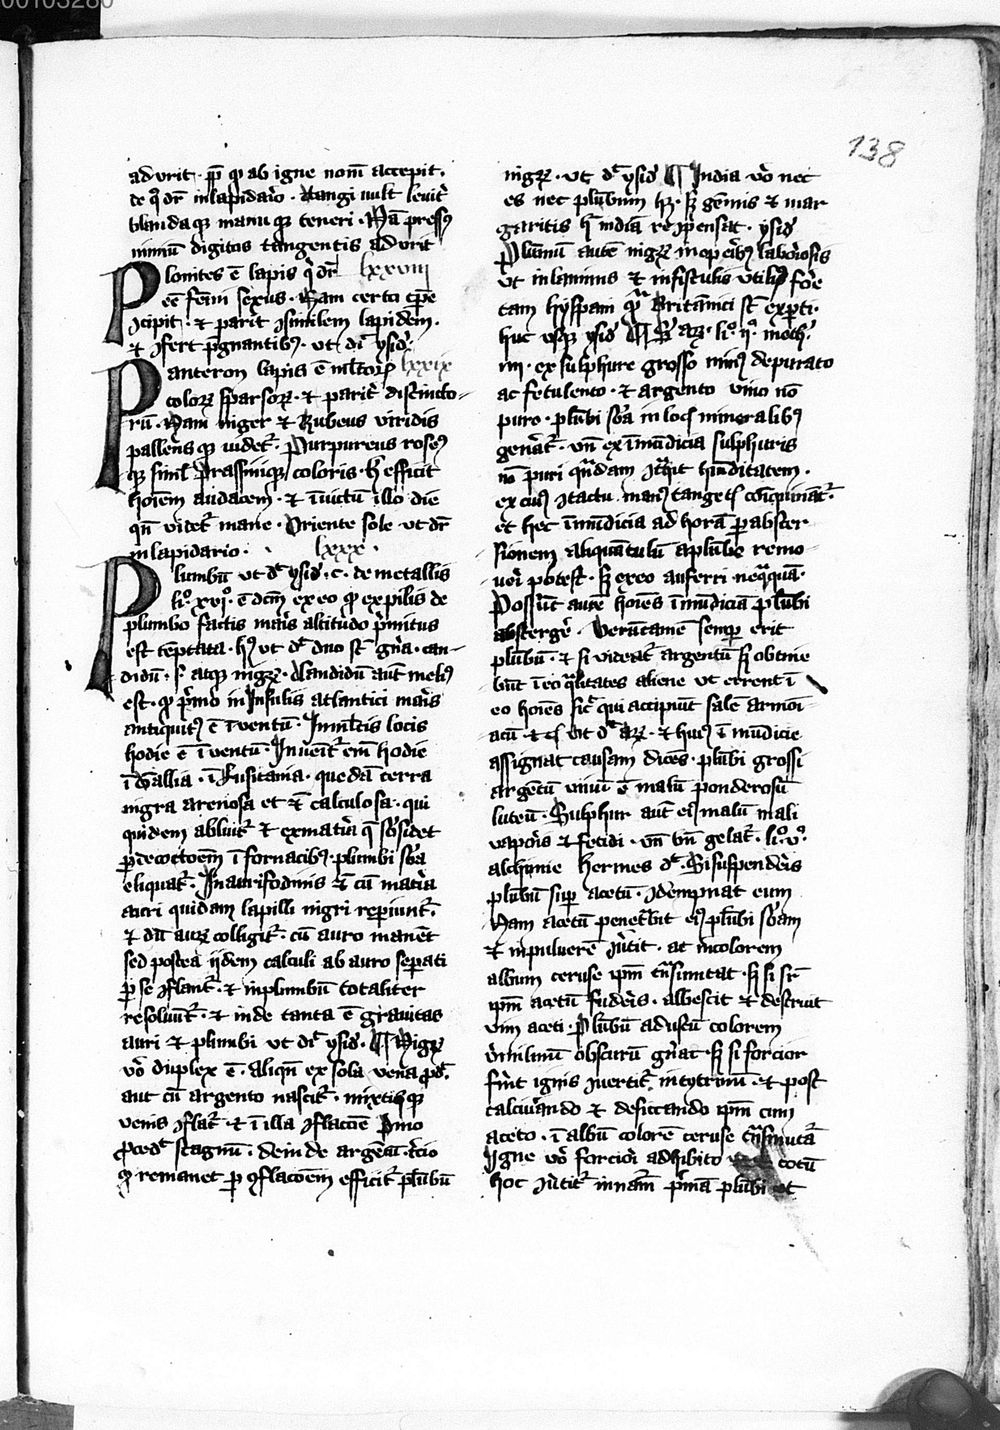 00103280
138
adurit · ꝓp̄ q ab igne nom̄ accepit ·
de q̊ dr̄ in lapidar̄o · tangi uult leuit᷑
blanda qꝫ manu qꝫ teneri · Nā pressꝰ
nimiū digitos tangentis adurit
Plonites ē lapis q̇ dr̄ lxxviii
eē femī sexus · Nam certo tp̄e
ꝯcipit · ⁊ parit ꝯsimilem lapidem ·
⁊ ꝯfert p̄gnantibꝰ · ut dī ysid᷑
Panteron lapis ē ml̄toꝝ lxxix
coloꝝ sparsoꝝ · ⁊ parit᷑ distincto-
rū · Nam niger ⁊ Rubeus viridis
pallens qꝫ uidet᷑ · Purpureus roseꝰ
qꝫ simul Prassiniqꝫ coloris · h̄ efficit
hoīem audacem · ⁊ īuictū illo die
qn̄ videt᷑ mane · Oriente sole ut dr̄
in lapidario · lxxx ·
Plumbū ut d᷑ ysid᷑ · c · de metallis
li° · xvi° · ē dcm̄ ex eo qꝫ ex pilis de
plumbo factis mar̄is altitudo p̄mitus
est tēptata · hꝰ ut d᷑ duo st̄ gn̄a · can-
didū · s · atqꝫ nigꝝ · Candidū aut̄ meliꝰ
est · qꝫ p̄mo in Insulis atlantici mar̄is
antiquitꝰ ē īuentū · In ml̄tis locis
hodie ē īuentū · Inueit᷑ em̄ hodie
ī Gallia · ī Lusitania · quedā terra
nigra arenosa et ⁊ calculosa · qui
quidem abluit᷑ ⁊ ex mat̄ia q̄ s̄bsidet
ꝑ decoctoēm ī fornacibꝰ · plumbi sb̄a
eliquat᷑ · In aurifodinis ⁊ cū mat̄ia
auri quidam lapilli nigri repiunt᷑ ·
⁊ dū auꝝ colligit᷑ · cū auro manēt
sed postea ijdem calculi ab auro seperati
ꝑ se ꝯflant᷑ · ⁊ in plumbū totaliter
resoluūt᷑ · ⁊ inde tanta ē grauitas
auri ⁊ plumbi ut dī ysid᷑ · ¶ Nigꝝ
v̊o duplex ē · aliqn̄ ex sola vena ꝓd᷑ ·
aut cū argento nascit᷑ · mixtis qꝫ
venis ꝯflat᷑ · ⁊ ī illa ꝯflactōe p̄mo
ꝓced᷑ stagnū · deinde argētū · t̄cio
qꝫ remanet ꝑ ꝯflacōem efficit᷑ plūbū
nigꝝ · ut d᷑ ysid᷑ ¶ India v̊o nec
es nec plūbum hꝫ · sꝫ gēmis ⁊ mar
garitis h̄ indiā recōpensat · ysid᷑
Plūmū autē nigꝝ in opibꝰ laboriosis
ut in laminis ⁊ in fistulis utiliꝰ foē
tam hyspani q᷑ Britānici st̄ expti ·
huc usqꝫ ysid᷑ ¶ S᷑ aꝝ · li° · ij° metheo᷑
iiii · ex sulphure grosso minꝰ depurato
ac fetulento · ⁊ argento uiuo nō
puro · plūbi sb̄a in locꝭ mineralibꝰ
gen̄at᷑ · vn̄ ex īmūdicia sulphuris
nō puri qn̄dam ꝯt̄hit humditatem ·
ex cuiꝰ ꝯtactu manꝰ tangētꝭ coinq̇nāt᷑ ·
et hec īmūdicia ad horā ꝑ abster-
sionem aliquātulū a plūbo remo-
ueri potest · sꝫ ex eo auferri neqꝫquā ·
Possūt autē hoīes īmūdiciā plūbi
abstergē᷑ · Verūtamē semp̄ erit
plūbū · ⁊ si videat᷑ argentū sꝫ obtine
būt ī eo q̄litates aliene ut errent ī
eo hoīes sic᷑ qui accipiūt salē armoī-
acū · ⁊ ꝯ ut d᷑ aꝝ · ⁊ huiꝰ īmūdicie
assignat causam dicēs · plūbi grossi
argētū uiuū ē malū ponderosū
luteū · Sulphur aut̄ eiꝰ malū mali
vaporis ⁊ fetidi · vn̄ bn̄ gelat᷑ · li° · v° ·
alchimie hermes d᷑ · Si suspenderis
plūbū sup̄ acetū · ꝯdempnat eum
Nam acetū penetbit eiꝰ plūbi sb̄am
⁊ in puluerē ꝯū̄tit · at in colorem
album ceruse ip̄m tn̄smutat · sꝫ si sr̄
ip̄m acetū fuderis · albescit ⁊ destruit
vim aceti · Plūbū adustū colorem
v̄miliū obscurū gn̄at · sꝫ si forcior
fuit ignis ꝯuertit᷑ in cytrinū · ⁊ post
calcinando ⁊ desiccando ip̄m cum
aceto · ī albū colorē ceruse tn̄smutat᷑
Igne v̊o forciori adhibito cotū
hoc ꝯū̄tit᷑ in nam̄ p̄mā plūbi et